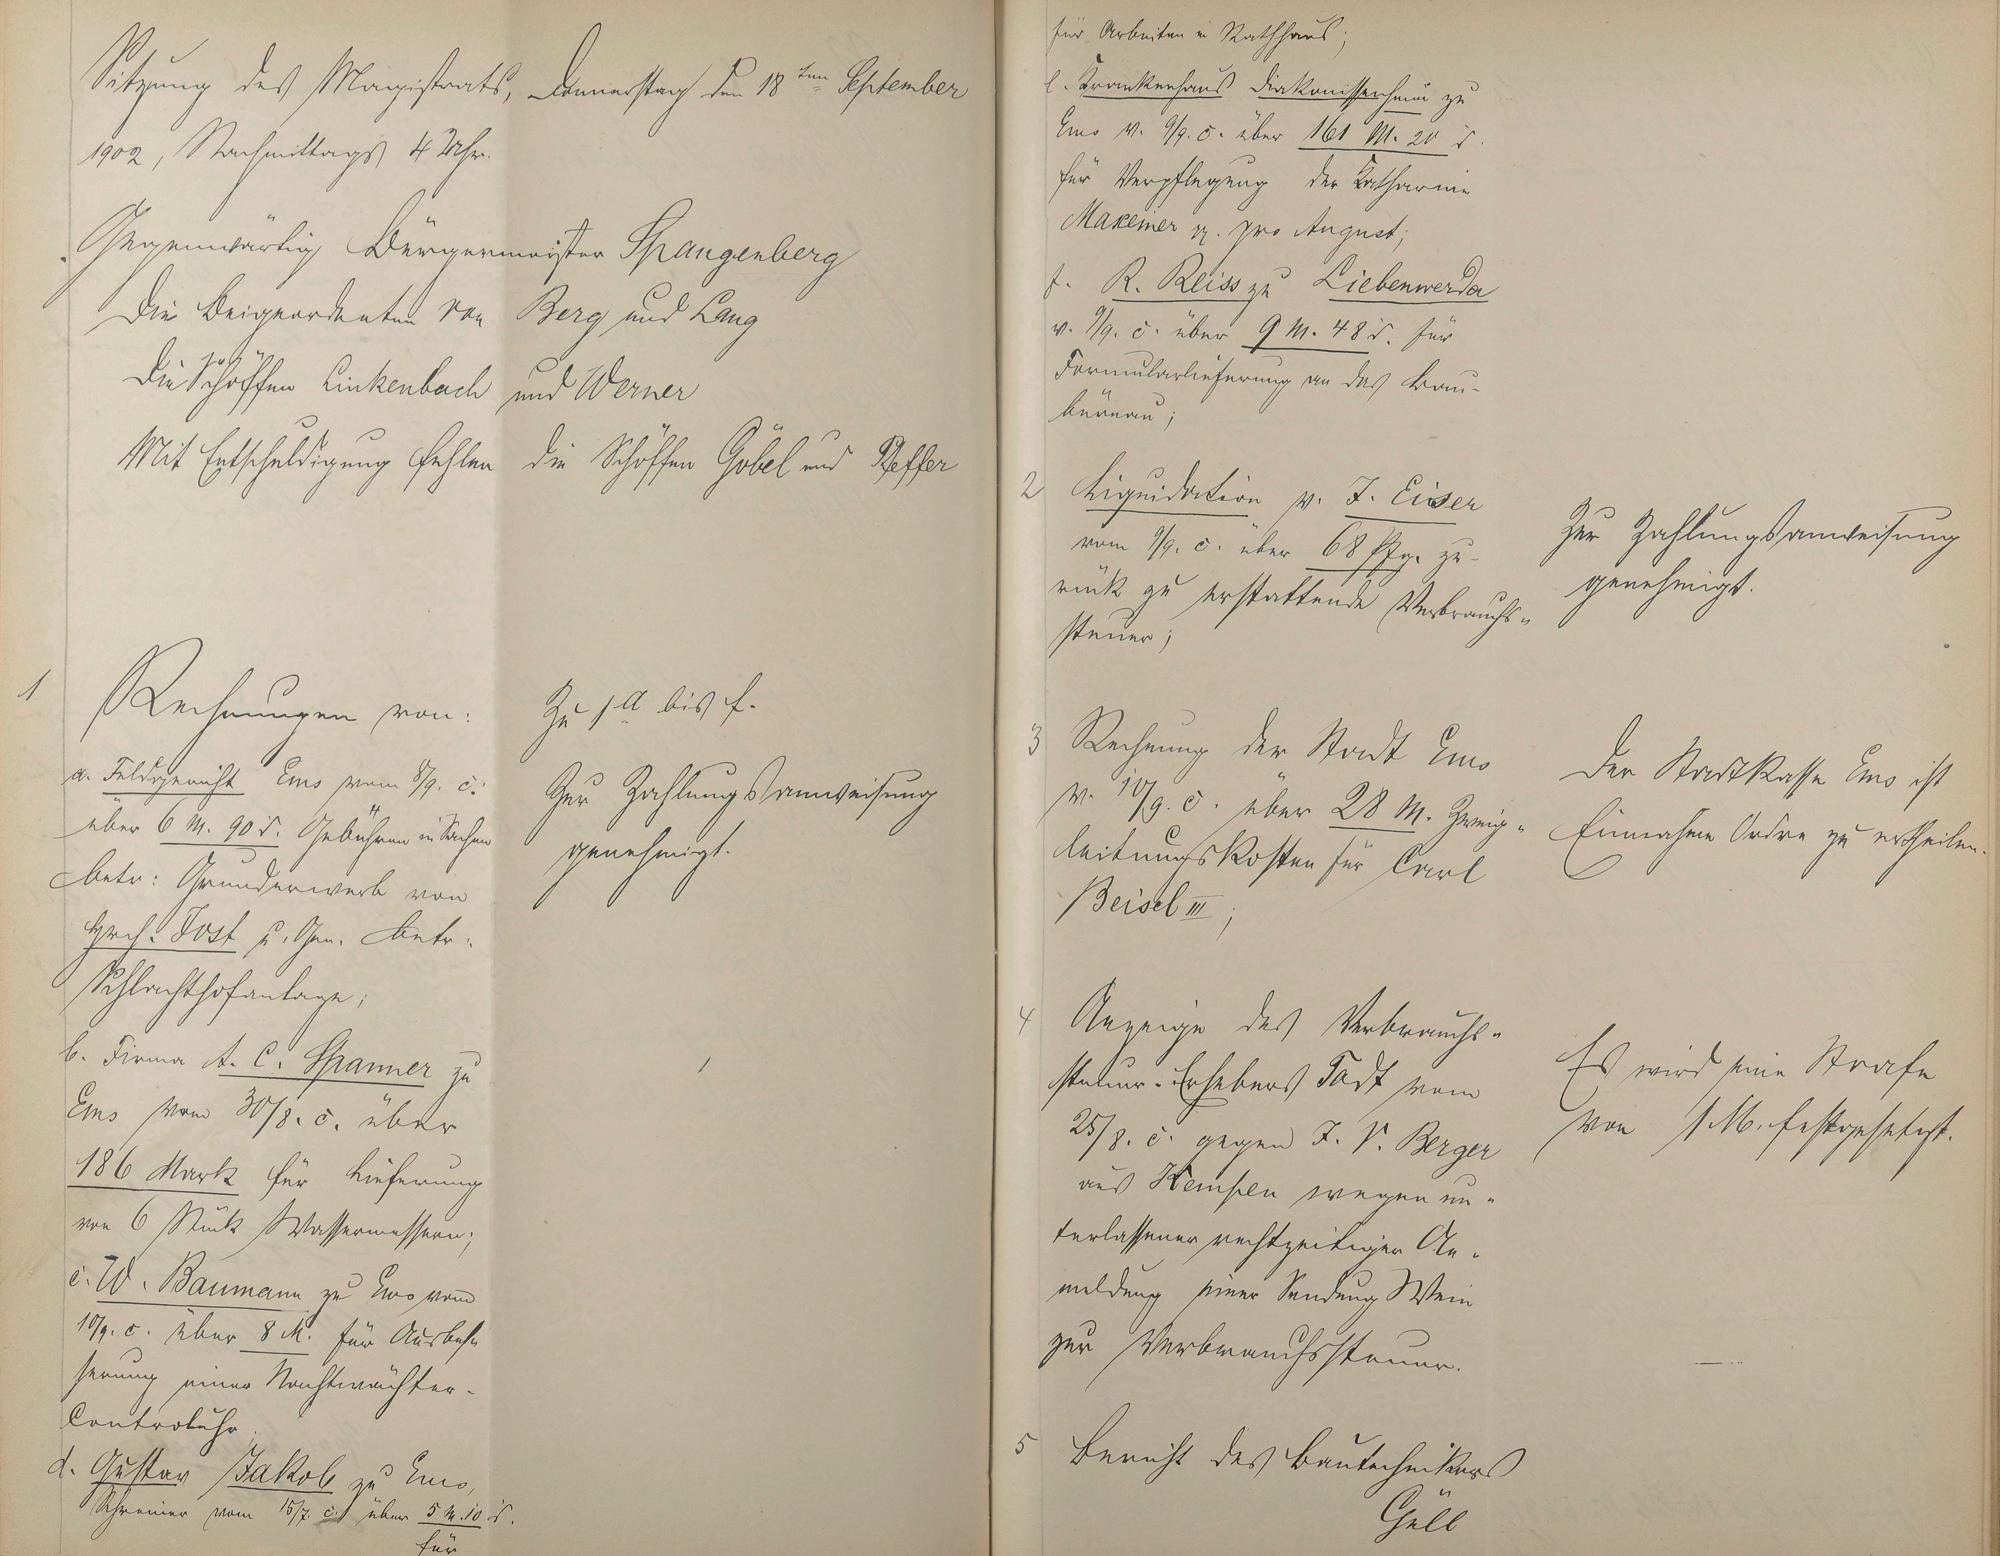 Sitzung des Magistrats, Donnerstag den 18ten September
1902, Nachmittags 4 Uhr.
Gegenwärtig Bürgermeister Spangenberg
Die Beigeordneten von Berg und Lang
Die Schöffen Linkenbach und Werner
Mit Entschuldigung fehlen die Schöffen Göbel und Pfeffer
1
Rechnungen von:
a. Feldgericht Ems vom 8/9. c.
über 6 M. 90 d. Gebühren in Sachen
betr: Grunderwerb von
Hrch. Jost u. Gen. betr.
Schlachthofanlage;
b. Firma A. C. Spanner zu
Ems vom 30/8. c. über
186 Mark für Lieferung
von 6 Stück Wassermessern;
c. W. Baumann zu Ems vom
10/9. c. über 8 M. für Ausbes=
serung einer Nachtwächter-
Controluhr.
d. Gustav Jakob zu Ems,
Schreiner vom 15/7. c. über 5 M. 10 d.
für
Zu 1 a bis f.
Zur Zahlungsanweisung
genehmigt.
für Arbeiten in Rathhaus;
e. Krankenhaus Diakonissenheim zu
Ems v. 9/9. c. über 161 M. 20 d.
für Verpflegung der Katharine
Maxeiner pro August;
f. R. Reiss zu Liebenwerda
v. 9/9. c. über 9 M. 48 d. für
Formularlieferung an das Bau-
büreau;
2 Liquidation v. J. Eiser
vom 9/9. c. über 68 Pfg. zu-
rück zu erstattende Verbrauchs=
steuer;
Zur Zahlungsanweisung
genehmigt.
3 Rechnung der Stadt Ems
v. 10/9. c. über 28 M. Zweig=
leitungskosten für Carl
Beisel III;
Der Stadtkasse Ems ist
Einnahme Ordre zu ertheilen.
4 Anzeige des Verbrauchs=
steuer-Erhebers Todt vom
25/8. c. gegen J. V. Berger
aus Kempen wegen un=
terlassener rechtzeitiger An=
meldung einer Sendung Wein
zur Verbrauchssteuer.
Es wird eine Strafe
von 1 M. festgesetzt.
5 Bericht des Bautechnikers
Güll